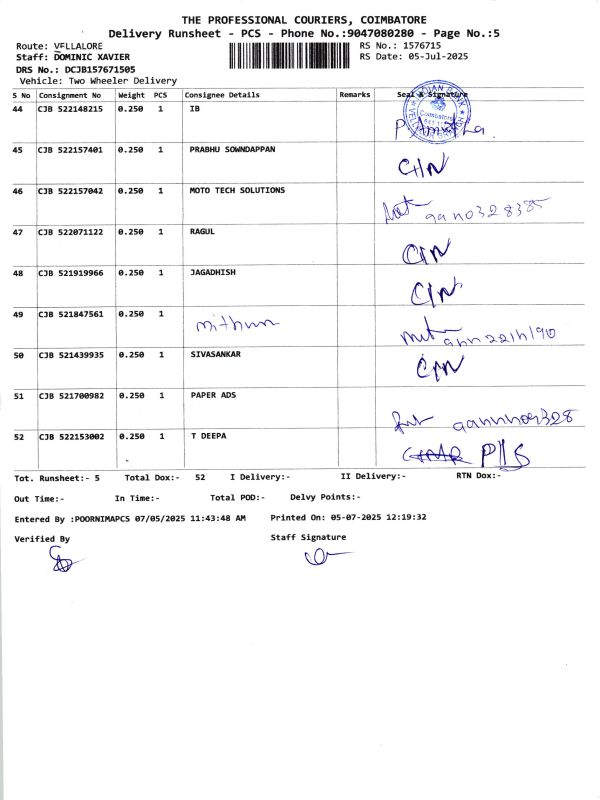 THE PROFESSIONAL COURIERS, COIMBATORE
Delivery Runsheet - PCS - Phone No.:9047080280 - Page No.:5
Route: VELLALORE RS No.: 1576715
Staff: DOMINIC XAVIER RS Date: 05-Jul-2025
DRS No.: DCJB157671505
Vehicle: Two Wheeler Delivery
S No Consignment No Weight PCS Consignee Details Remarks Seal & Signature
44 CJB 522148215 0.250 1 IB
45 CJB 522157401 0.250 1 PRABHU SOWNDAPPAN
46 CJB 522157042 0.250 1 MOTO TECH SOLUTIONS
47 CJB 522071122 0.250 1 RAGUL
48 CJB 521919966 0.250 1 JAGADHISH
49 CJB 521847561 0.250 1 mithun
50 CJB 521439935 0.250 1 SIVASANKAR
51 CJB 521700982 0.250 1 PAPER ADS
52 CJB 522153002 0.250 1 T DEEPA
Tot. Runsheet:- 5 Total Dox:- 52 I Delivery:- II Delivery:- RTN Dox:-
Out Time:- In Time:- Total POD:- Delvy Points:-
Entered By :POORNIMAPCS 07/05/2025 11:43:48 AM Printed On: 05-07-2025 12:19:32
Verified By Staff Signature